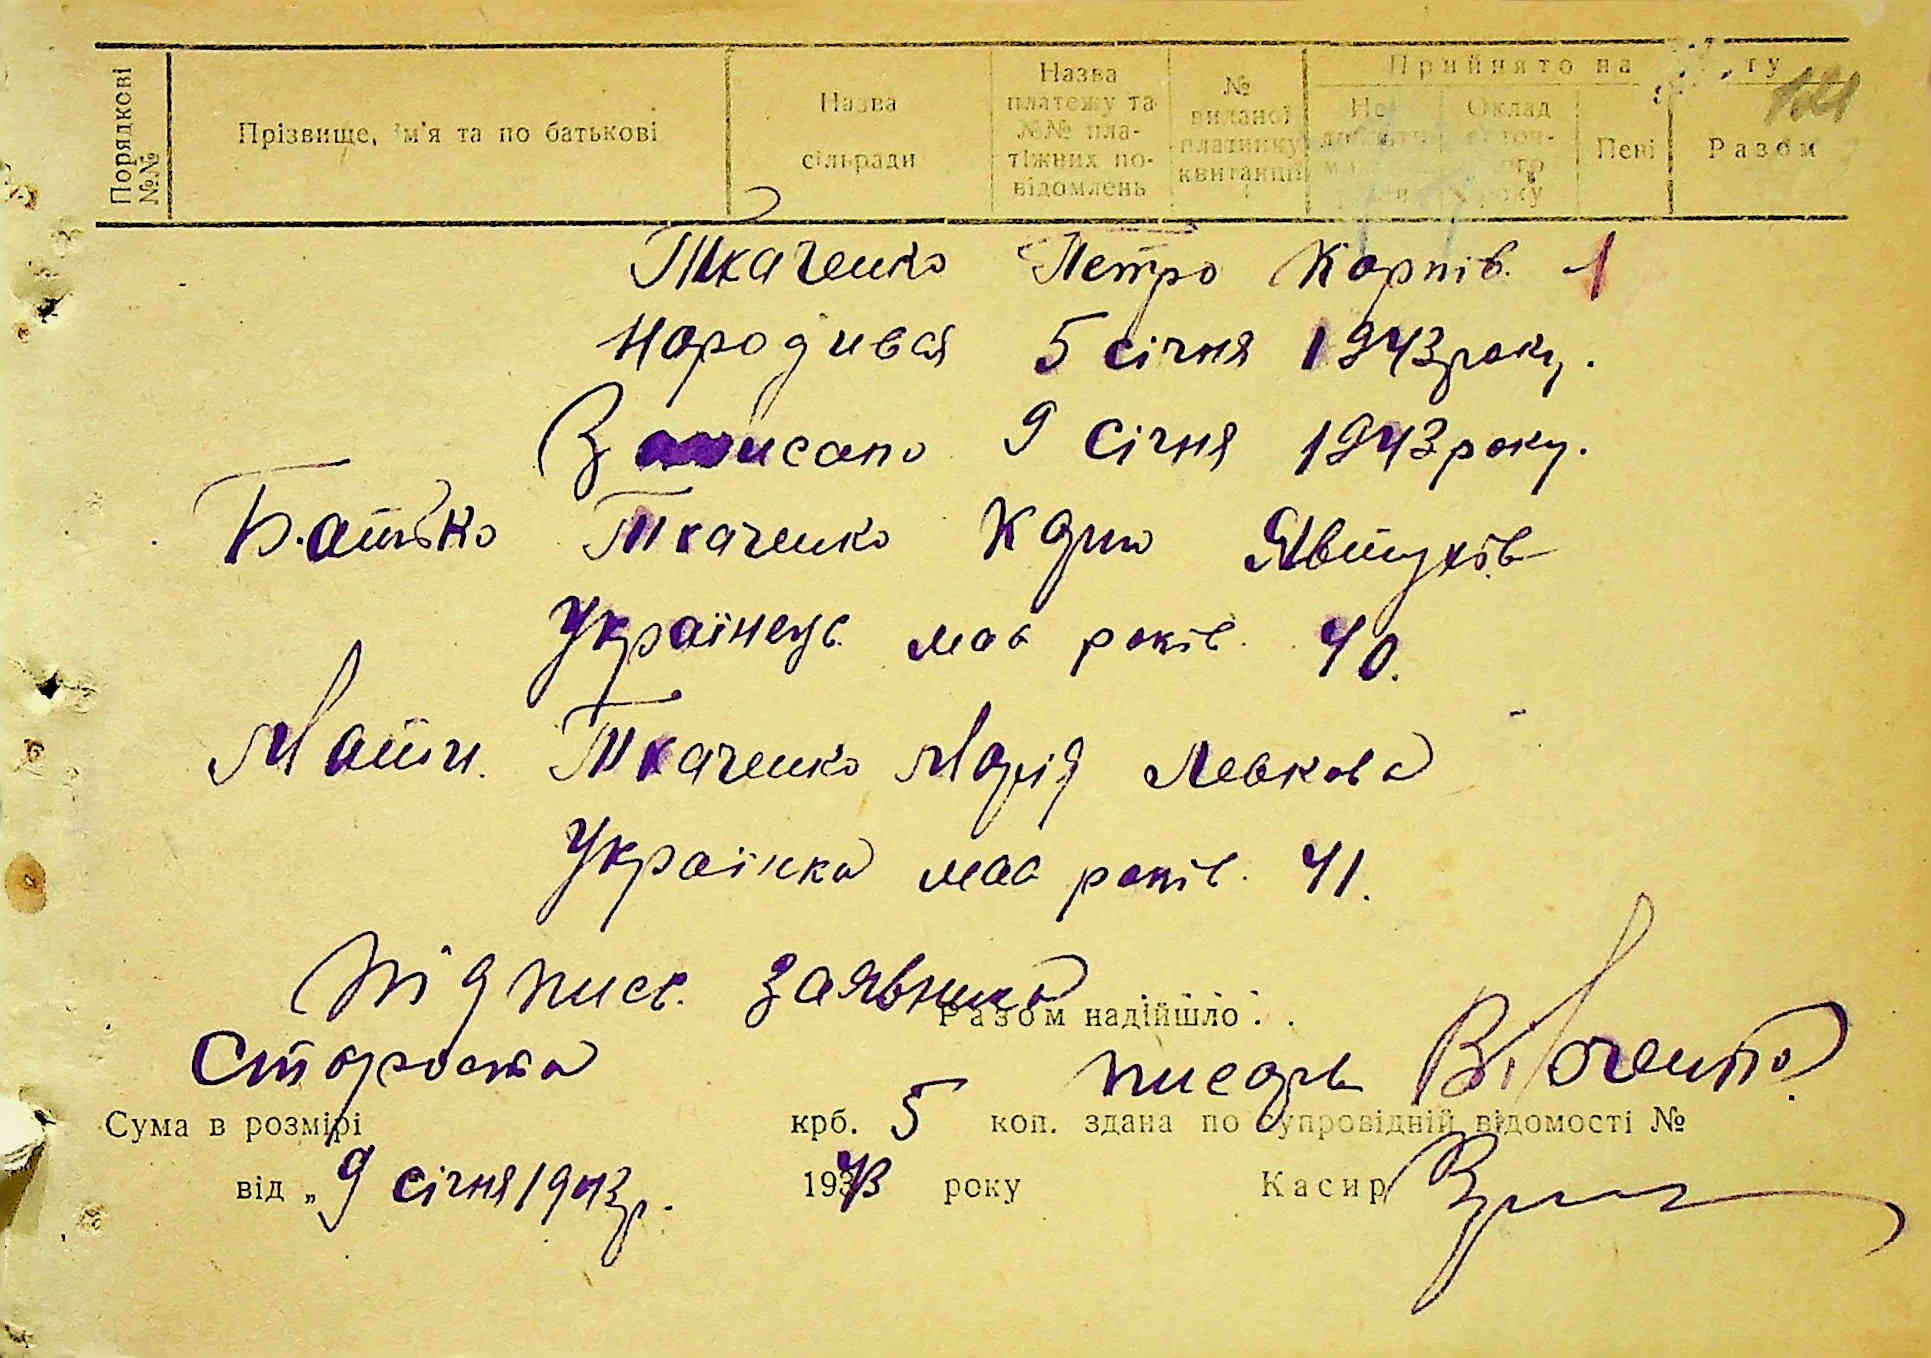 Порядкові №№
Прізвище, ім'я та по батькові
Назва сільради
Назва платежу та №№ пла-тіжних по-відомлень
№ виданої платнику квитанції
Прийнято на
Оклад
Пені
Разом
Ткаченко Петро Карпів. 1
Народивсь 5 січня 1943 року.
Записано 9 січня 1943 року.
Батько Ткаченко Карпо Явтухів
Українець має років. 40.
Мати. Ткаченко Марія Левкова
Українка має років. 41.
Підпис. заявника
Разом надійшло . .
Староста писарь
Сума в розмірі крб. 5 коп. здана по супровідній відомості №
від „ 9 січня 1943 р. 1943 року Касир